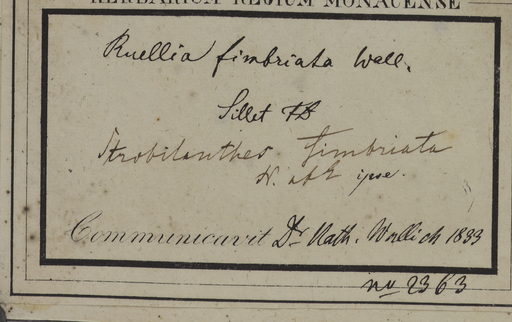 HERBARIUM REGIUM MONACENSE
Ruellia fimbriata Wall.
Sillet FB
Strobilanthes fimbriata
N. ab E ipse.
Communicavit Dr Nath. Wallich 1833
no 2363